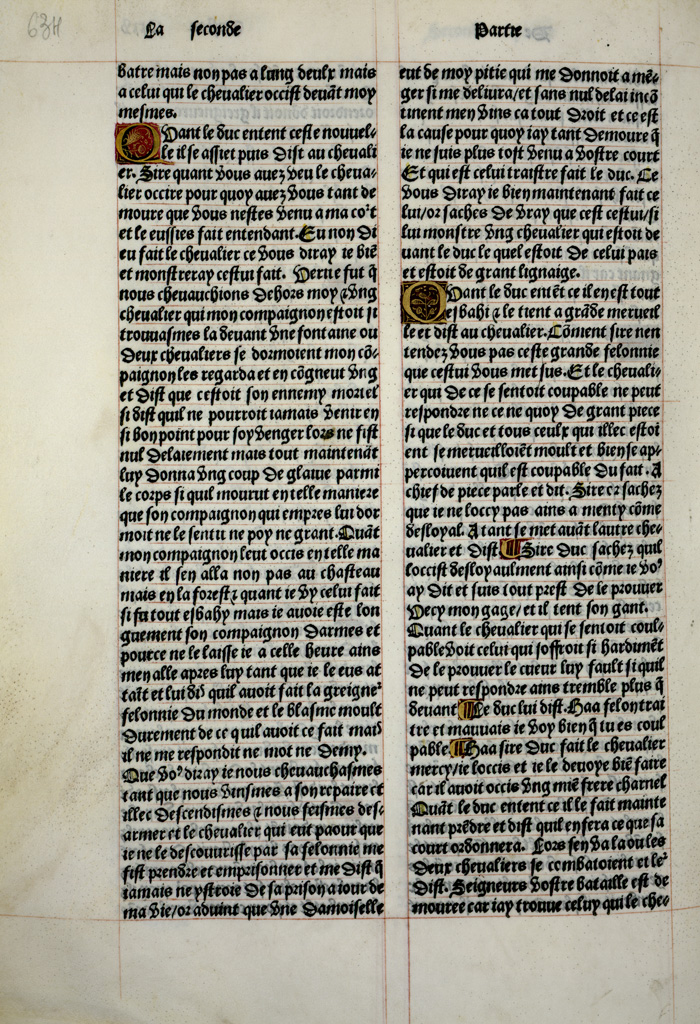 634
La seconde
Partie
batre mais non pas a lung deulx mais
a celui qui le chevalier occist deuāt moy
mesmes.
Quant le duc entent ceste nouuel-
le il se assiet puis dist au cheuali
er. Sire quant vous auez veu le cheua-
lier occire pour quoy auez vous tant de
moure que vous nestes venu a ma co˜t
et le eussies fait entendant. En non di
eu fait le cheualier ce vous diray ie biē
et monstreray cestui fait. Verite fut q̄
nous cheuauchions dehors moy ⁊ vng
cheualier qui mon compaignon estoit si
trouuasmes la deuant vne fontaine ou
deux cheualiers se dormoient mon cō-
paignon les regarda et en cōgneut vng
et dist que cestoit son ennemy mortel
si dist quil ne pourroit iamais venir en
si bon point pour soy venger lors ne fist
nul delaiement mais tout maintenāt
luy donna vng coup de glaiue parmi
le corps si quil mourut en telle maniere
que son compaignon qui empres lui dor
moit ne le sentit ne po˜y ne grant. Quāt
mon compaignon leut occis en telle ma
niere il sen alla non pas au chasteau
mais en la forest ⁊ quant ie vy celui fait
si fu tout esbahy mais ie auoie este lon
guement son compaignon darmes et
pource ne le laisse ie a celle heure ains
men alle apres luy tant que ie le eus at
tāt et lui dis quil auoit fait la greigne˜
felonnie du monde et le blasme moult
durement de ce quil auoit ce fait mais
il ne me respondit ne mot ne demy.
Que voꝰ diray ie nous cheuauchasmes
tant que nous vinsmes a son repaire et
illec descendismes ⁊ nous feismes des-
armer et le cheualier qui eut paour que
ie ne le descouurisse par sa felonnie me
fist prendre et emprisonner et me dist q̄
iamais ne ystroie de sa prison a iour de
ma vie/or aduint que vne damoiselle
eut de moy pitie qui me donnoit a mē-
ger si me deliura/et sans nul delai incō
tinent men vins ca tout droit et ce est
la cause pour quoy iay tant demoure q̄
ie ne suis plus tost venu a vostre court
Et qui est celui traistre fait le duc. Ce
vous diray ie bien maintenant fait ce
lui/or saches de vray que cest cestui/si
lui monstre vng cheualier qui estoit de
uant le duc le quel estoit de celui pais
et estoit de grant lignaige.
Quant le duc entēt ce il en est tout
esbahi ⁊ le tient a grāde merueil
le et dist au cheualier. Cōment sire nen
tendez vous pas ceste grande felonnie
que cestui vous met sus. Et le cheuali-
er qui de ce se sentoit coupable ne peut
respondre ne ce ne quoy de grant piece
si que le duc et tous ceulx qui illec estoi
ent se merueilloiēt moult et bien se ap-
perceuoient quil est coupable du fait. A
chief de piece parle et dit. Sire or sachez
que ie ne loccy pas ains a menty cōme
desloyal. A tant se met auāt lautre che-
ualier et dist. Sire duc sachez quil
loccist desloyaulment ainsi cōme ie voꝰ
ay dit et suis tout prest de le prouuer
Vecy mon gage/et il tent son gant.
Quant le cheualier qui se sentoit coul-
pable voit celui qui soffroit si hardimēt
de le prouuer le cueur luy fault si quil
ne peut respondre ains tremble plus q̄
deuant Le duc lui dist. Haa felon trai
tre et mauuais ie voy bien q̄ tu es coul
pable. Haa sire duc fait le cheualier
mercy/ie loccis et ie le deuoye biē faire
car il auoit occis vng miē frere charnel
Quāt le duc entent ce il le fait mainte
nant prēdre et dist quil en fera ce que sa
court ordonnera. Lors sen va la ou les
deux cheualiers se combatoient et le˜
dist. Seigneurs vostre bataille est de
mouree car iay trouue celuy qui le che-